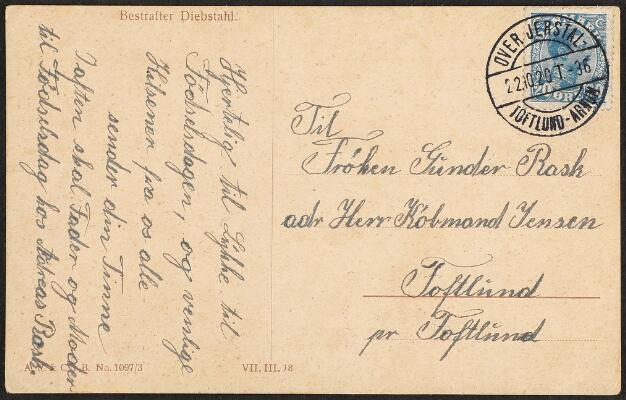 Bestrafter Diebstahl.
Hjertelig til Lykke til
Födselsdagen, og venlige
Hilsener fra os alle
sender din Tinne
I aften skal Fader og Moder
til Födselsdag hos Andreas Rask.
OVER JERSTAL-
22.10.20 T. 36
TOFTLUND-ARNUM
20 ØRE
Til
Fröken Gunder Rask
adr Herr Köbmand Jensen
Toftlund
pr Toftlund
B. No. 1097/3
VII. III. 18